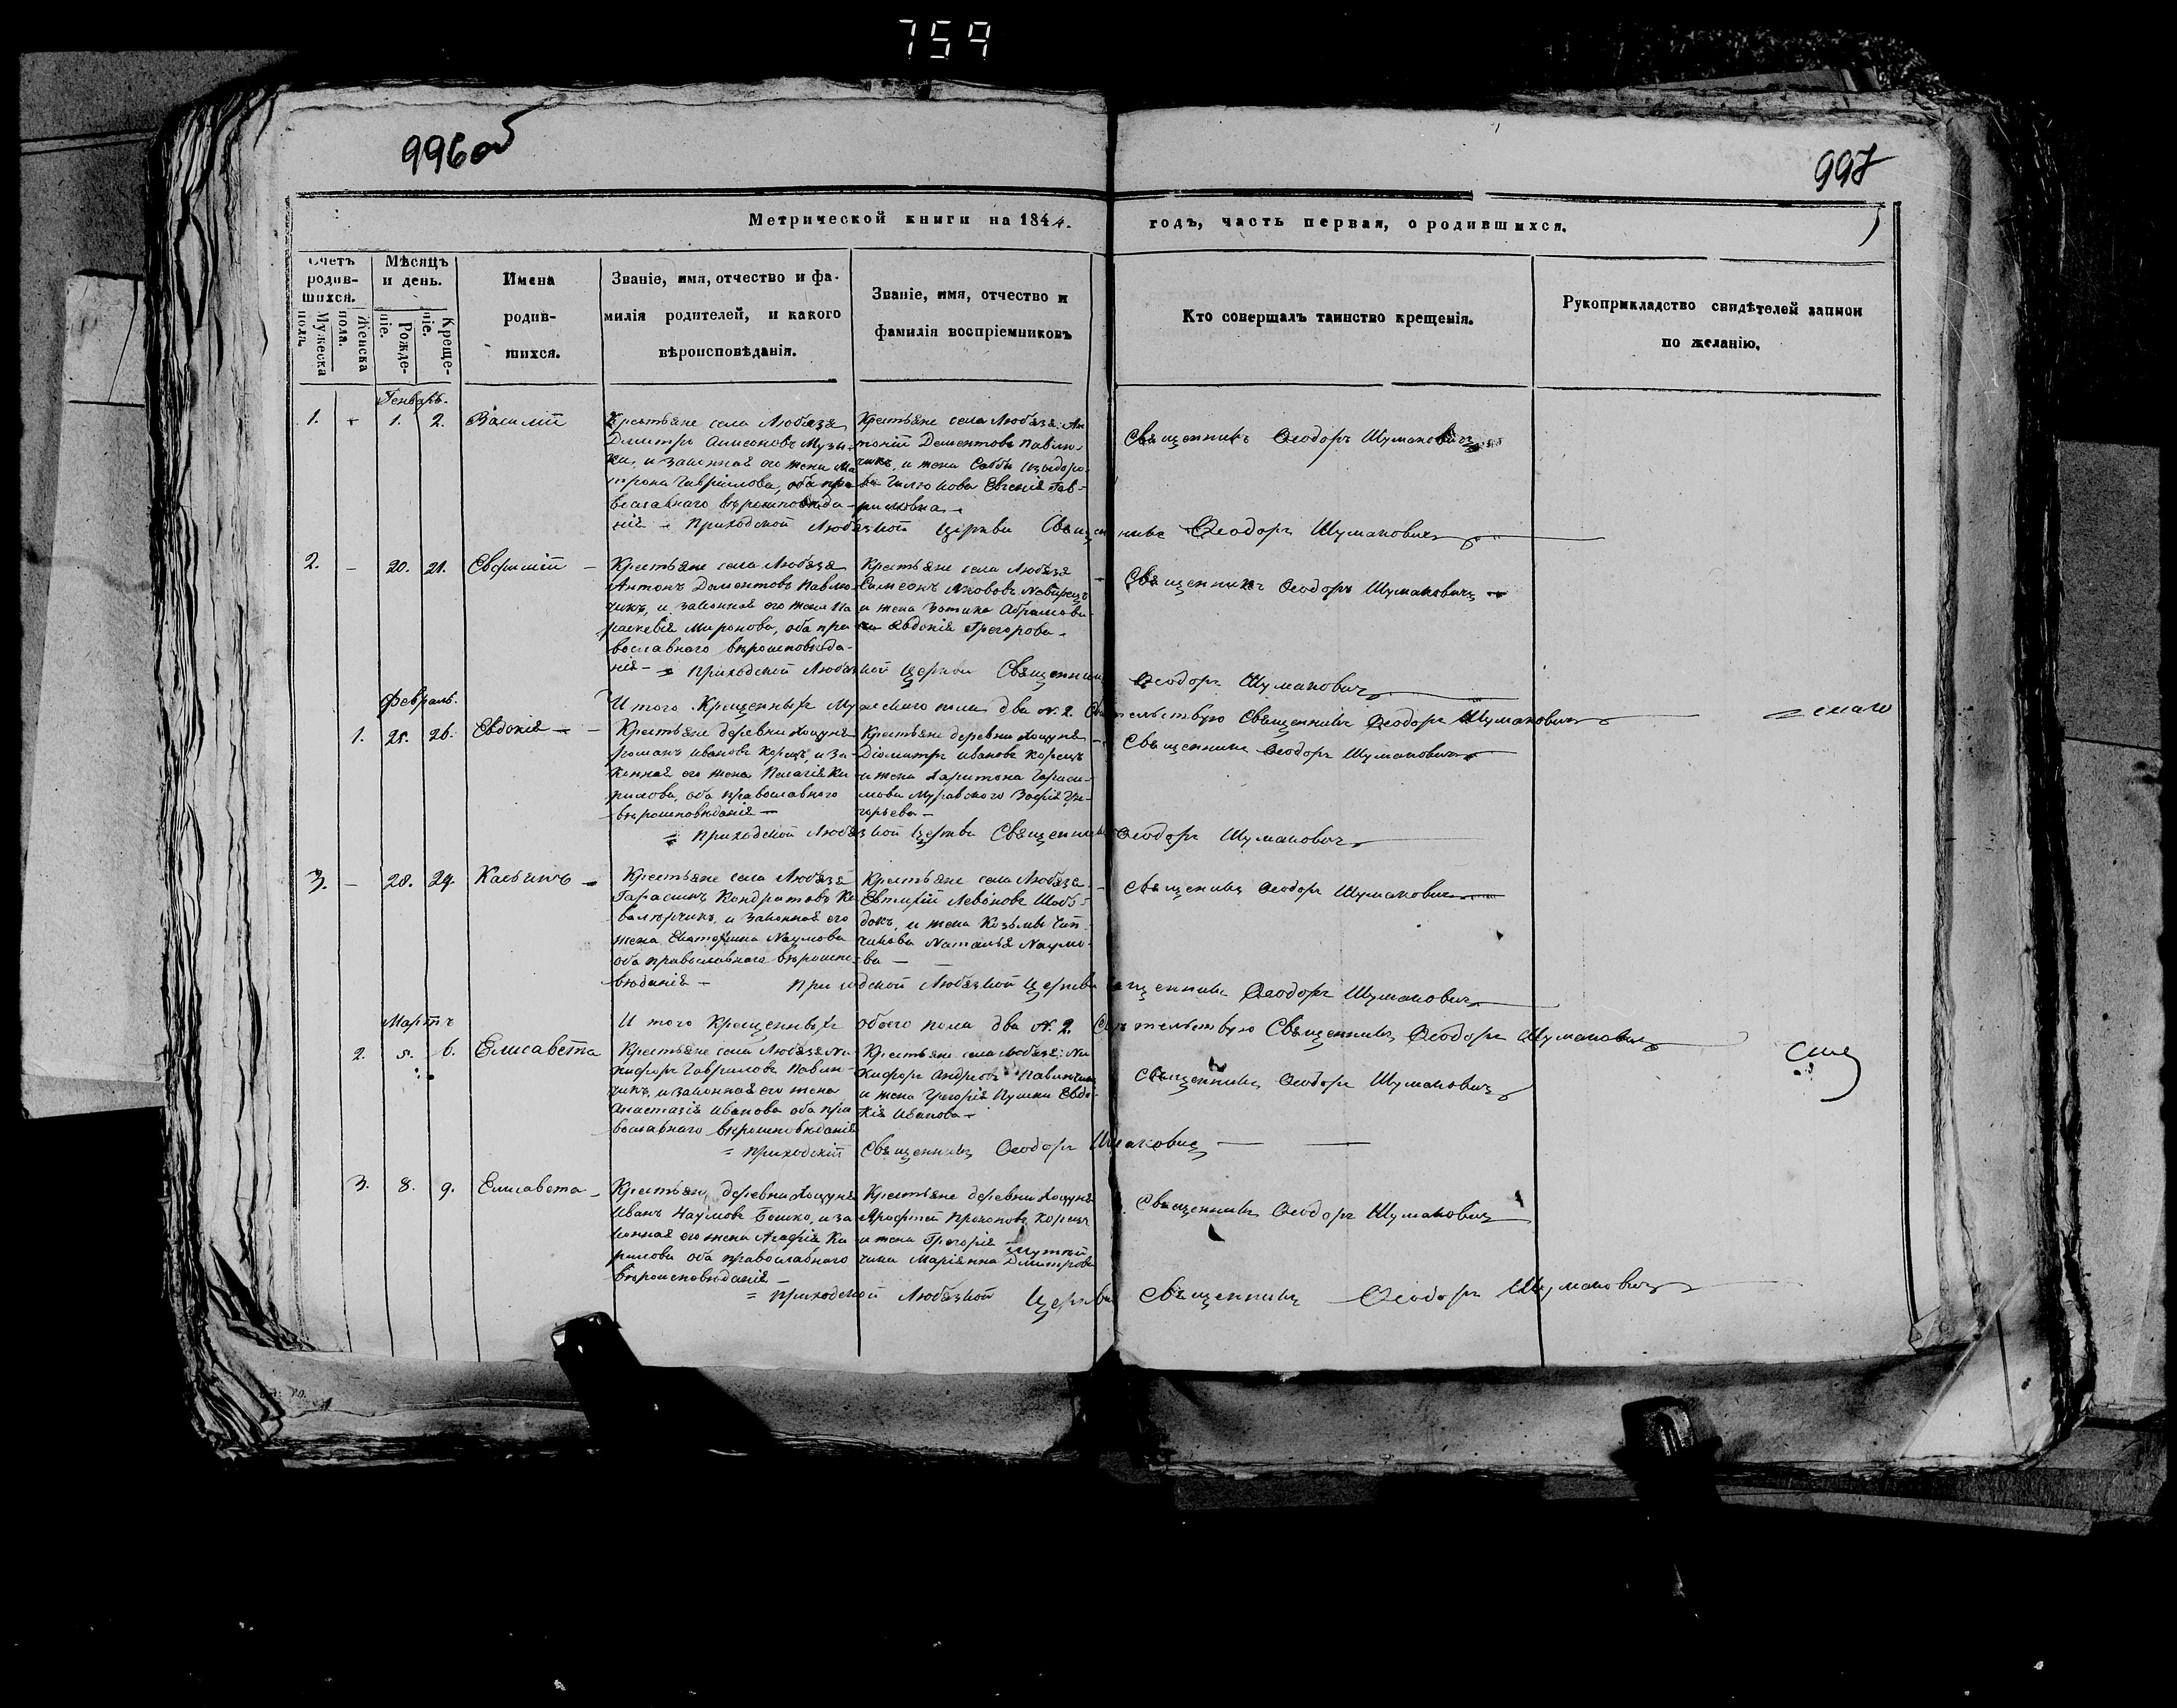 759
996 об
997
Метрической книги на 1844. годъ, часть первая, о родившихся.
Счетъ родив-шихся.
Мужеска пола.
Женска пола.
Мѣсяцъ и день.
Рожде-ніе.
Креще-ніе.
Имена родив-шихся.
Званіе, имя, отчество и фа-
милія родителей, и какого
вѣроисповѣданія.
Званіе, имя, отчество и
фамилія воспріемниковъ
Кто совершалъ таинство крещенія.
Рукоприкладство свидѣтелей записи
по желанію.
Генварь.
1. 1. 2. Василій
Крестьяне села Любязя
Дмитръ Музы-
ка, и законная его жена Ма
трона Гаврiилова, оба пра
вославнаго вѣроисповѣда-
нія
Крестьяне села Любязя: Ан
тоній Дементовъ Павлю-
чикъ, и жена
Евгенія Гав-
рилова
Священникъ Ѳеодоръ Шумановичъ
Приходской Любязкой Церкви Священникъ Ѳеодоръ Шумановичъ
2. - 20. 21. Евфимій -
Крестьяне села Любязя
Антонъ Дементовъ Павлю-
чикъ, и законная его жена Па
раскевія Миронова, оба пра
вославнаго вѣроисповѣда-
нія -
Крестьяне села Любязя
Симеонъ Якововъ
и жена Абрамови
Евдокія Григорова -
Священникъ Ѳеодоръ Шумановичъ
Приходской Любязкой Церкви Священникъ Ѳеодоръ Шумановичъ
Итого Крещенныхъ Мужескаго пола два N. 2. Свидѣтельствую Священникъ Ѳеодоръ Шумановичъ
Февраль.
1. 25. 26. Евдокія -
Крестьяне деревни Хоцуня
Романъ Ивановъ Корецъ, и за-
конная его жена Пелагія Ки
рилова, оба православнаго
вѣроисповѣданія -
Крестьяне деревни Хоцуня
Дiомитръ Ивановъ Корецъ
и жена Харитона Гараси-
мова Муравского Зофія Гри-
горьева -
Священникъ Ѳеодоръ Шумановичъ
Приходской Любязкой Церкви Священникъ Ѳеодоръ Шумановичъ
3. - 28. 29. Касьянъ -
Крестьяне села Любязя
Гарасимъ Кондратовъ Ко
вальчикъ, и законная его
жена Екатерина Наумова
оба православнаго вѣроиспо-
вѣданія -
Крестьяне села Любязя
Евтихій Левоновъ
и жена Козьмы
Наталья Наумо-
ва -
Священникъ Ѳеодоръ Шумановичъ
Приходской Любязкой Церкви Священникъ Ѳеодоръ Шумановичъ
Итого Крещенныхъ обоего пола два N. 2. Свидѣтельствую Священникъ Ѳеодоръ Шумановичъ
Мартъ
2. 5. 6. Елисавета
Крестьяне села Любязя Ни-
кифоръ Гавриловъ Павлю-
чикъ, и законная его жена
Анастазія Иванова оба пра
вославнаго вѣроисповѣданія
Крестьяне села Любязя: Ни
кифоръ Андреевъ Павлючикъ
и жена Григорія Пушки Евдо
кія Иванова -
Священникъ Ѳеодоръ Шумановичъ
Приходскій Священникъ Ѳеодоръ Шумановичъ
3. 8. 9. Елисавета -
Крестьяне деревни Хоцуня
Иванъ Наумовъ Бошко, и за
конная его жена Агафія Ки
рилова оба православнаго
вѣроисповѣданія -
Крестьяне деревни Хоцуня
Прокоповъ Корецъ
и жена Григорія
Маріянна Дмитрова
Священникъ Ѳеодоръ Шумановичъ
Приходской Любязкой Церкви Священникъ Ѳеодоръ Шумановичъ